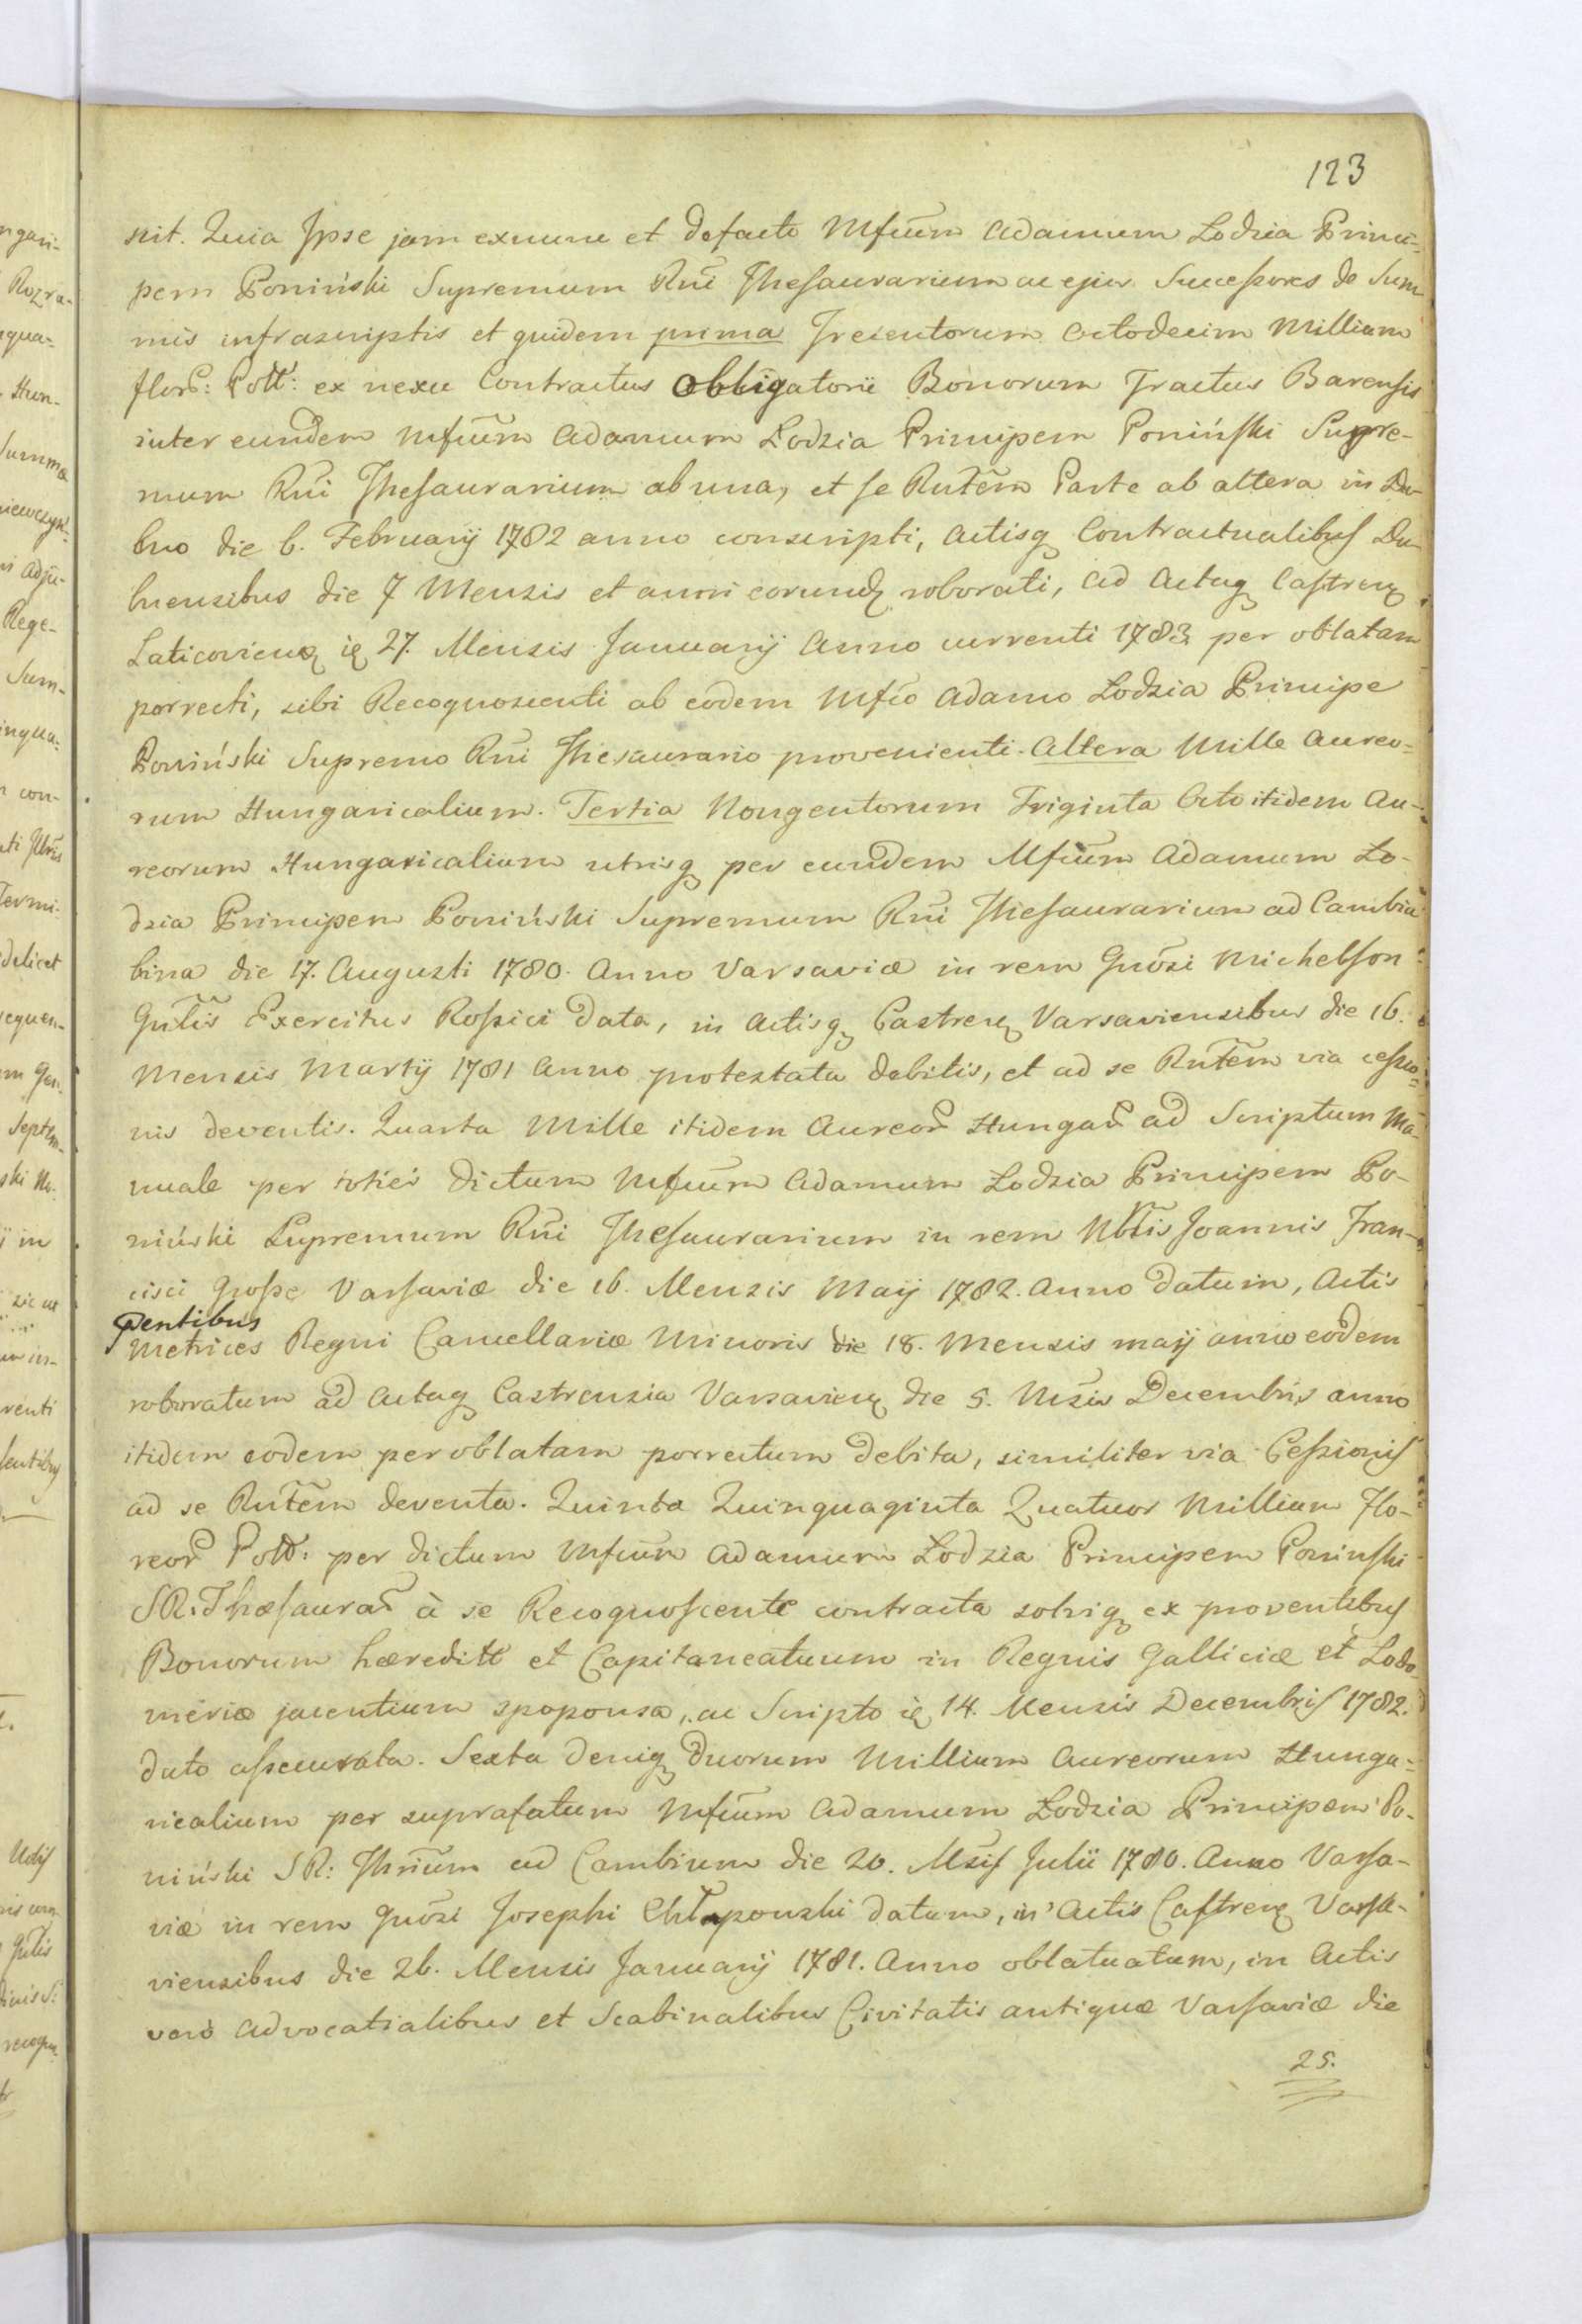 123
nit. Quia Ipse jam exnunc et defacto Mfcum Adamum Lodzia Princi-
pem Poniński Supremum Rni Thesaurarium ac ejus Successores de Sum
mis infrascriptis et quidem prima Trecentorum Octodecim Millium
flor: Poll: ex nexu Contractus Obligatorii Bonorum Tractus Barensis
inter eundem Mfcum Adamum Lodzia Principem Poniński Supre-
mum Rni Thesaurarium ab una, et se Rntem Parte ab altera in Du-
bno die 6. February 1782 anno conscripti, Actisq Contractualibus Du-
bnensibus die 7 Mensis et anni eorund roborati, ad Actaq Castren
Laticovien ie 27. Mensis January Anno currenti 1783 per oblatam
porrecti, sibi Recognoscenti ab eodem Mfco Adamo Lodzia Principe
Poniński Supremo Rni Thesaurario provenienti. Altera Mille Aureo-
rum Hungaricalium. Tertia Nongentorum Triginta Octo itidem Au-
reorum Hungaricalium utrisq per eundem Mfcum Adamum Lo-
dzia Principem Poniński Supremum Rni Thesaurarium ad Cambia
bina die 17. Augusti 1780. Anno Varsaviæ in rem Gnosi Michelson
Gnlis Exercitus Rossici data, in Actisq Castren Varsaviensibus die 16.
Mensis Marty 1781 Anno protestata debitis, et ad se Rntem via cessio-
nis deventis. Quarta Mille itidem Aureor Hungar ad Scriptum Ma-
nuale per toties dictum Mfcum Adamum Lodzia Principem Po-
niński Supremum Rni Thesaurarium in rem Nblis Joannis Fran-
cisci Grosse Varsaviæ die 16. Mensis Maij 1782. Anno datum, Actis
pentibus
Metrices Regni Cancellariæ Minoris die 18. Mensis maij anno eodem
roboratum ad Actaq Castrensia Varsavien die 5. Msis Decembris anno
itidem eodem per oblatam porrectum debita, similiter via Cessionis
ad se Rntem deventa. Quinta Quinquaginta Quatuor Millium Flo-
reor Poll: per dictum Mfcum Adamum Lodzia Principem Poninski
S R. Thæsaurar à se Recognoscente contracta solviq ex proventibus
Bonorum hæreditt et Capitaneatuum in Regnis Galliciæ et Lodo-
meriæ jacentium spoponsa, ac Scripto ie 14. Mensis Decembris 1782.
dato assecurata. Sexta deniq duorum Millium Aureorum Hunga-
ricalium per suprafatum Mfcum Adamum Lodzia Principem Po-
niński S R: Thrium ad Cambium die 20. Msis Julii 1780. Anno Varsa-
viæ in rem Gnosi Josephi Chłaponski datum, in Actis Castren Varsa-
viensibus die 26. Mensis January 1781. Anno oblatuatum, in Actis
vero Advocatialibus et Scabinalibus Civitatis antiquæ Varsaviæ die
25.